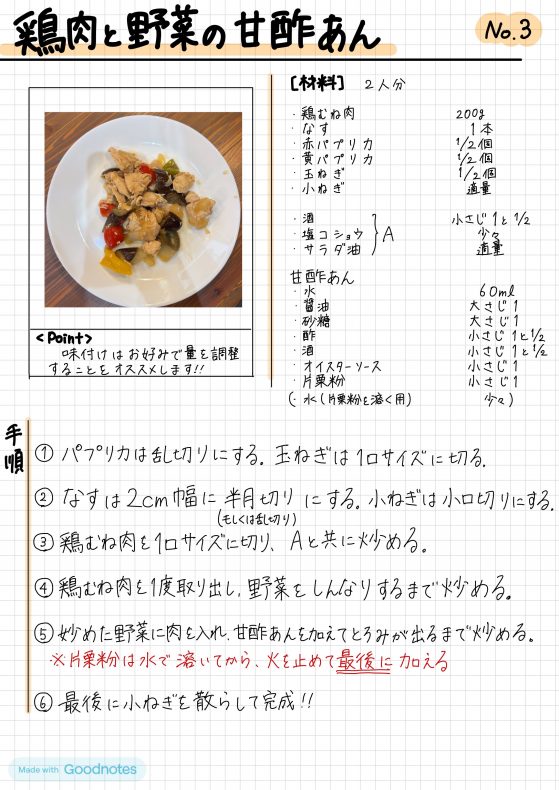 鶏肉と野菜の甘酢あん
No.3
[材料] 2人分
・鶏むね肉 200g
・なす 1本
・赤パプリカ 1/2個
・黄パプリカ 1/2個
・玉ねぎ 1/2個
・小ねぎ 適量
・酒 小さじ1と1/2
・塩コショウ } A 少々
・サラダ油 適量
甘酢あん
・水 60ml
・醤油 大さじ1
・砂糖 大さじ1
・酢 小さじ1と1/2
・酒 小さじ1と1/2
・オイスターソース 小さじ1
・片栗粉 小さじ1
(・水(片栗粉を溶く用) 少々)
<Point>
味付けはお好みで量を調整
することをオススメします!!
手順
① パプリカは乱切りにする。玉ねぎは1口サイズに切る。
② なすは2cm幅に半月切りにする。小ねぎは小口切りにする。
(もしくは乱切り)
③ 鶏むね肉を1口サイズに切り、Aと共に炒める。
④ 鶏むね肉を1度取り出し、野菜をしんなりするまで炒める。
⑤ 炒めた野菜に肉を入れ、甘酢あんを加えてとろみが出るまで炒める。
※片栗粉は水で溶いてから、火を止めて最後に加える
⑥ 最後に小ねぎを散らして完成!!
Made with Goodnotes